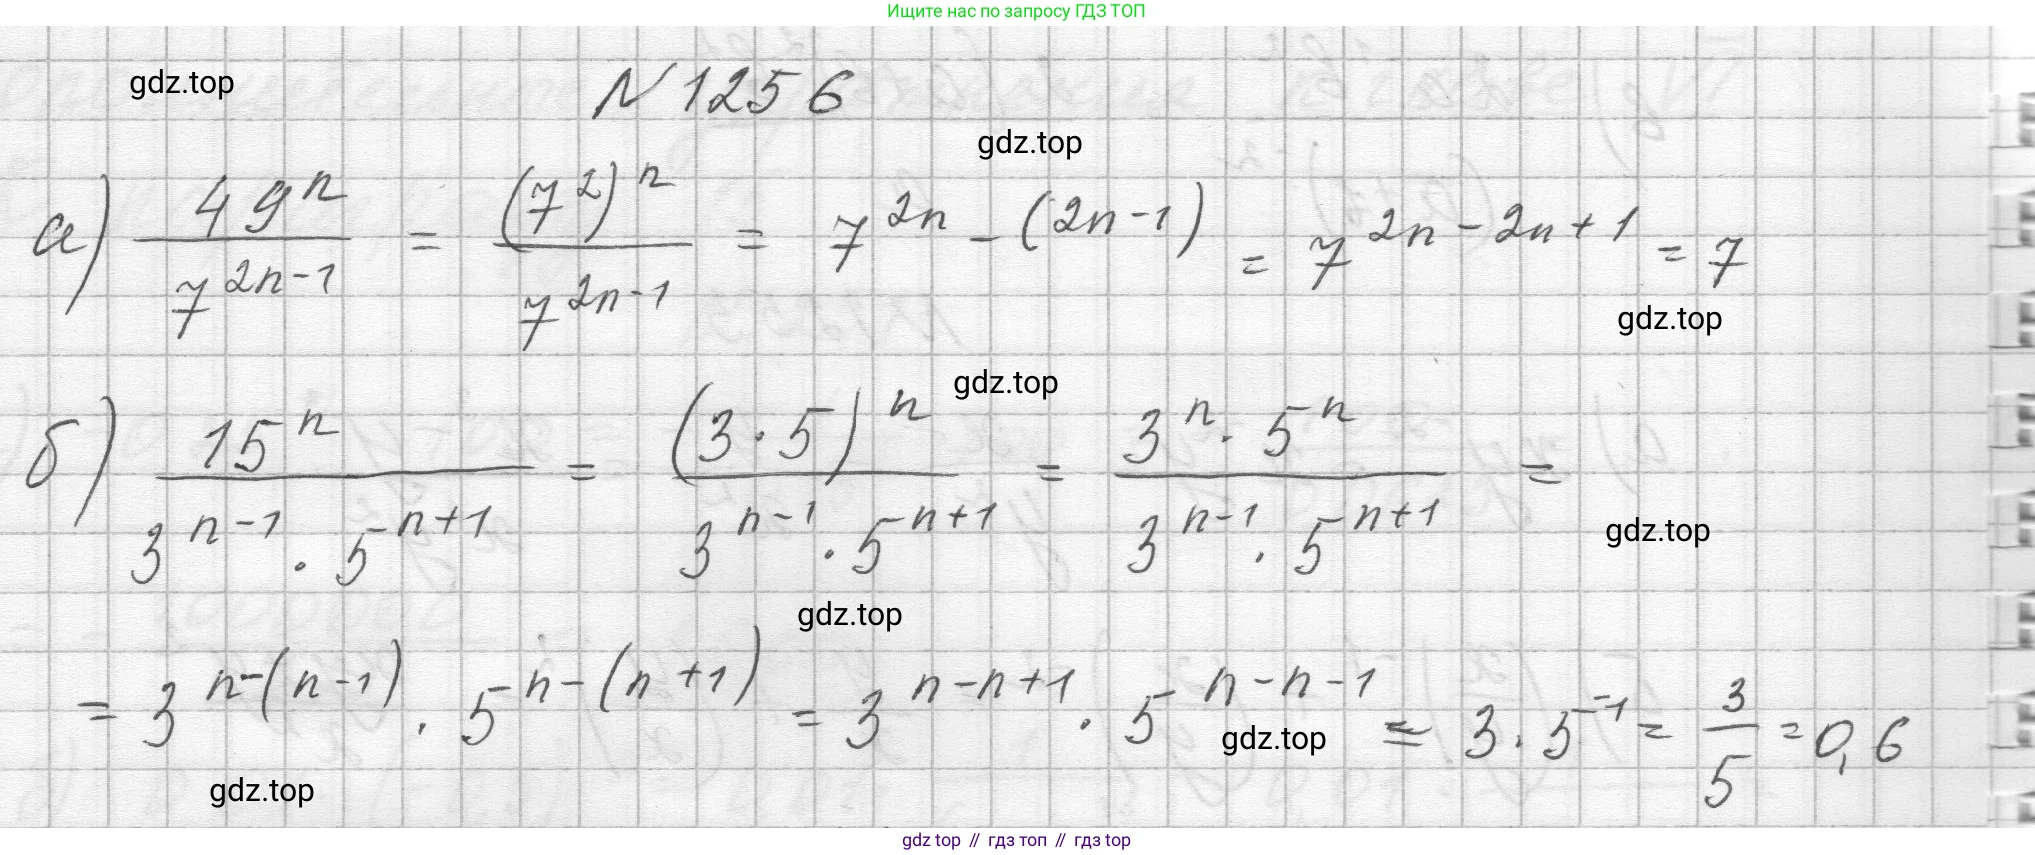 Ищите нас по запросу ГДЗ ТОП
gdz.top
N 1256
gdz.top
а) 49^n / 7^(2n-1) = (7^2)^n / 7^(2n-1) = 7^(2n - (2n-1)) = 7^(2n-2n+1) = 7
gdz.top
gdz.top
б) 15^n / (3^(n-1) · 5^(n+1)) = (3·5)^n / (3^(n-1) · 5^(n+1)) = (3^n · 5^n) / (3^(n-1) · 5^(n+1)) =
gdz.top
gdz.top
= 3^(n-(n-1)) · 5^(n-(n+1)) = 3^(n-n+1) · 5^(n-n-1) = 3·5^(-1) = 3/5 = 0,6
gdz.top
gdz.top
gdz top // гдз топ // гдз top